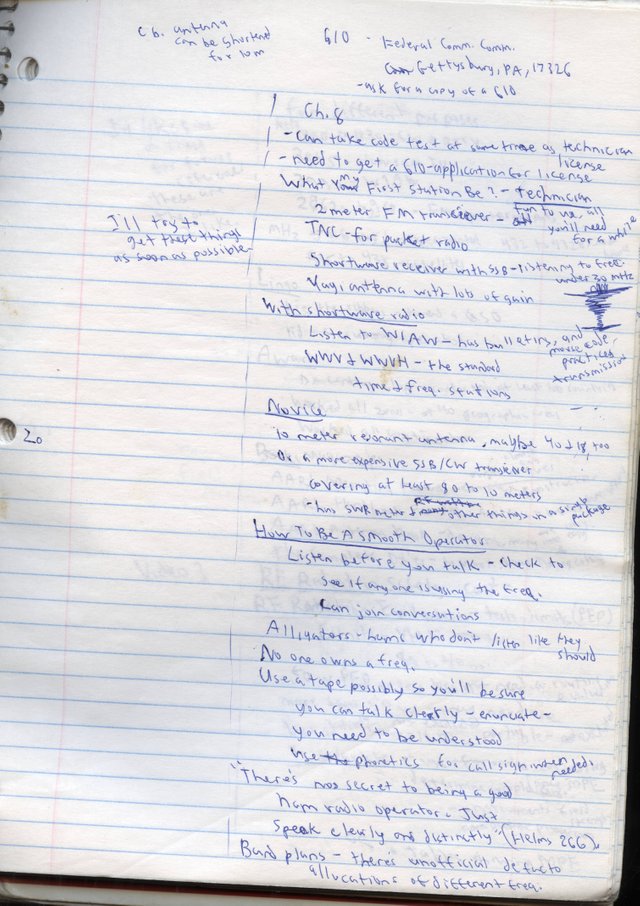 CB antenna
can be shortened
for 10m
610 - Federal Comm. Comm.
Gettysburg, PA, 17326
-ask for a copy of a 610
Ch. 8
-can take code test at same time as technician license
-need to get a 610-application for license
What my First Station Be? - Technician
2 meter FM transceiver - fun to use, all you'll need for a while
I'll try to
get these things
as soon as possible-
TNC-for packet radio
Shortwave receiver with SSB-listening to freq. under 30 MHz
Yagi antenna with lots of gain
With shortwave radio
Listen to W1AW - has bulletins, and morse code, practice transmission
WWV & WWVH - the standard
time & freq. stations
Novice
10 meter resonant antenna, maybe 40 & 15, too
Or a more expensive SSB/CW transceiver
covering at least 80 to 10 meters
-has SWR meter & other things in a single package
20
How To Be A Smooth Operator
Listen before you talk - check to
see if anyone is using the freq.
Can join conversations
Alligators - hams who don't listen like they should
No one owns a freq.
Use a tape possibly so you'll be sure
you can talk clearly - enunciate -
you need to be understood
use phonetics for call sign when needed.
"There's no secret to being a good
ham radio operator. Just
speak clearly and distinctly" (Helms 266).
Band plans - there's unofficial defacto
allocations of different freq.